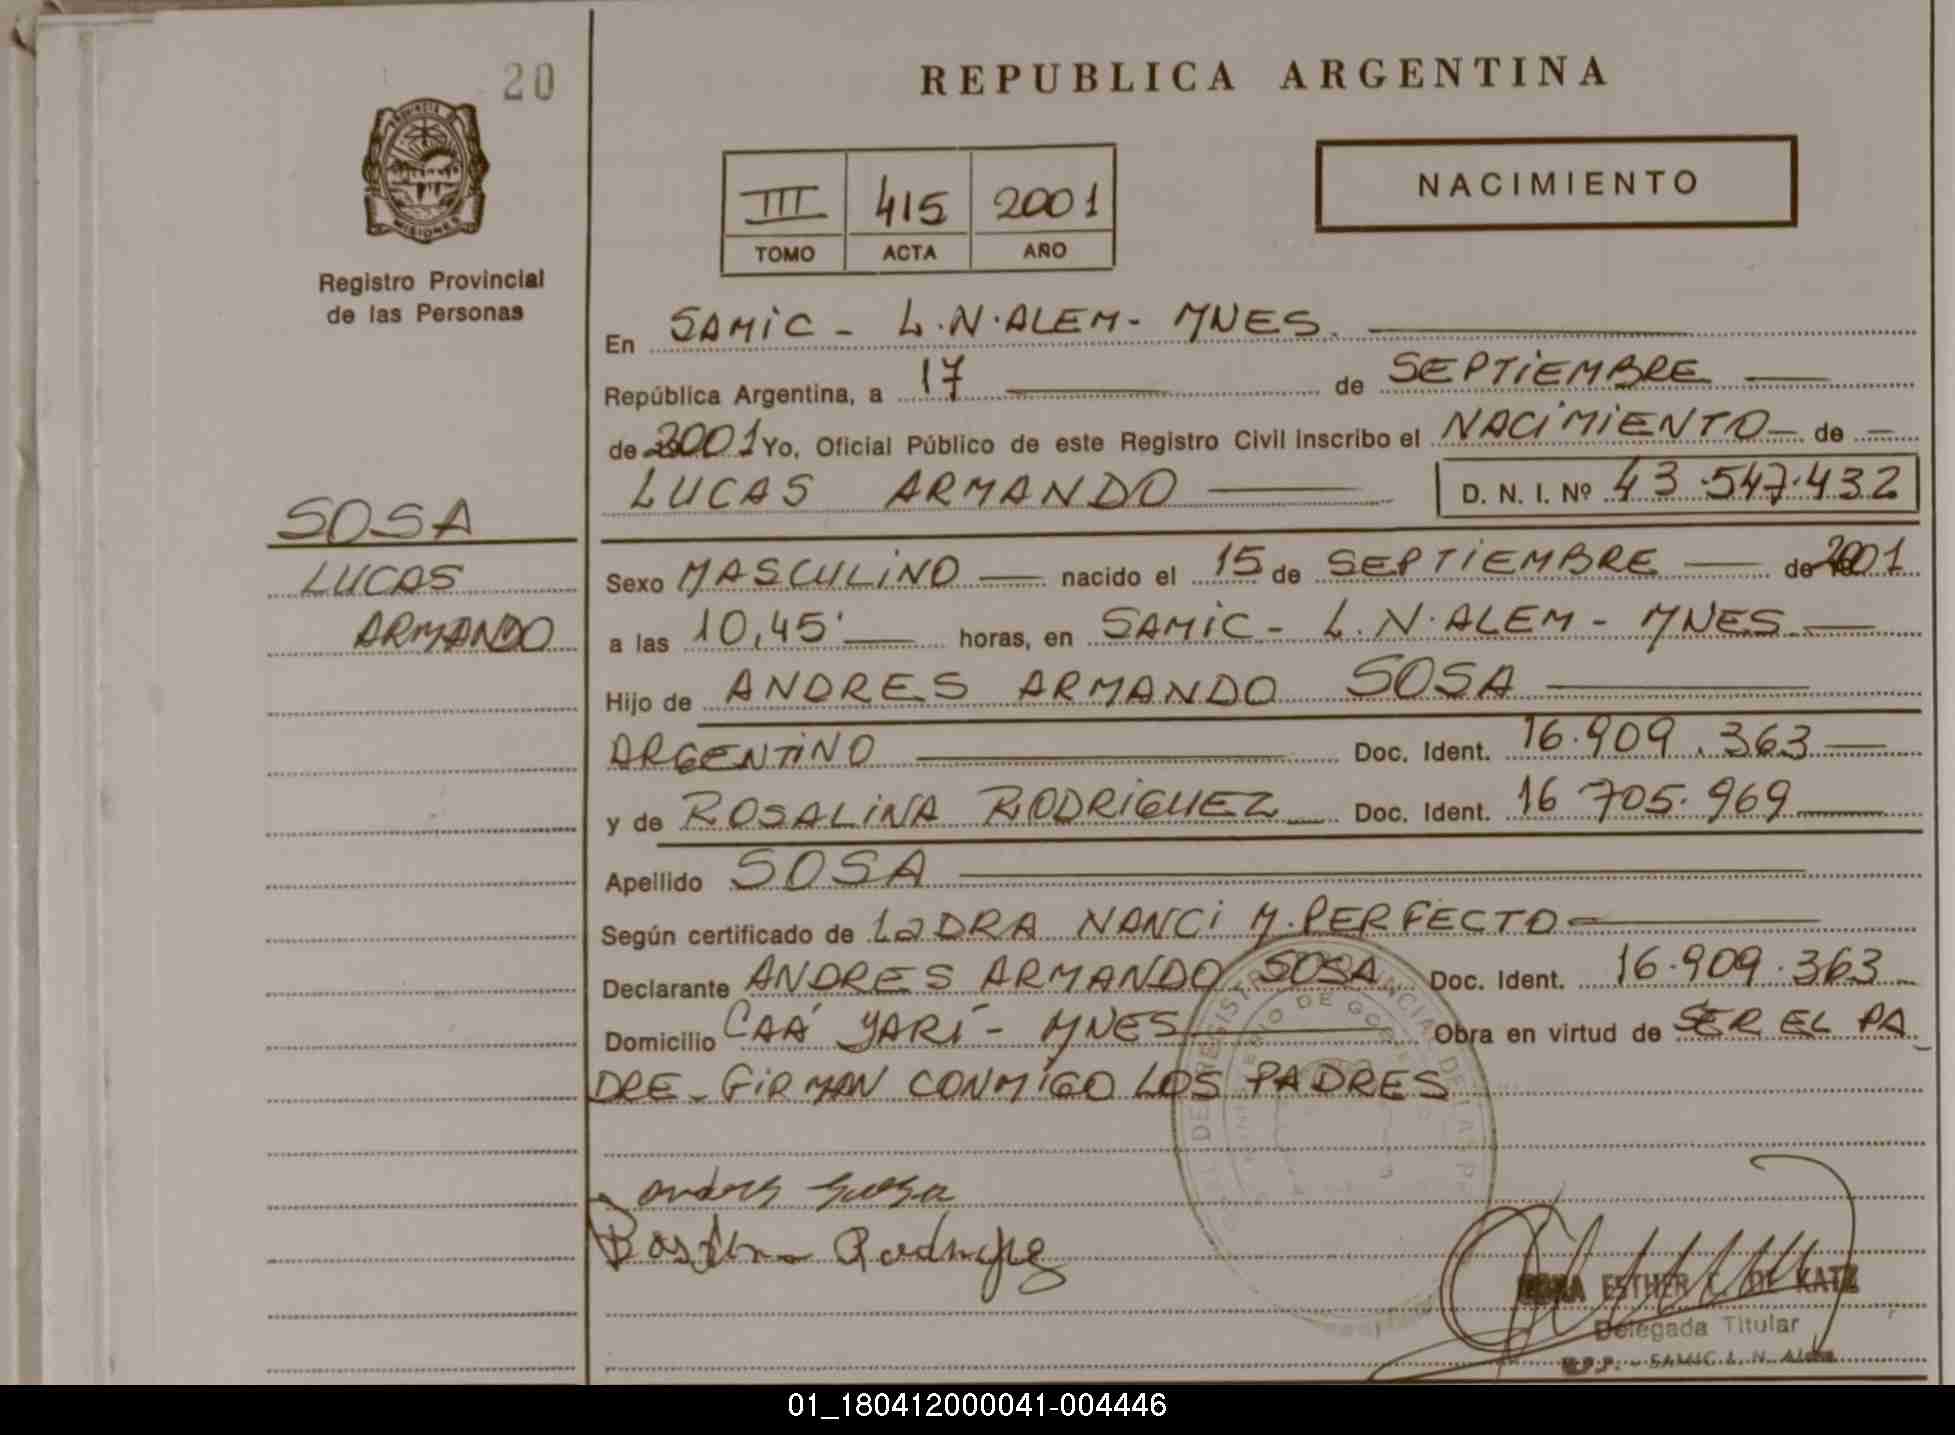 20
REPUBLICA ARGENTINA
PROVINCIA DE
MISIONES
Registro Provincial
de las Personas
III 415 2001
TOMO ACTA AÑO
NACIMIENTO
En SAMIC - L.N.ALEM - MNES.
República Argentina, a 17 de SEPTIEMBRE
de 2001 Yo, Oficial Público de este Registro Civil inscribo el NACIMIENTO de
LUCAS ARMANDO D. N. I. Nº 43.547.432
SOSA
LUCAS
ARMANDO
Sexo MASCULINO nacido el 15 de SEPTIEMBRE de 2001
a las 10,45' horas, en SAMIC - L.N.ALEM - MNES
Hijo de ANDRES ARMANDO SOSA
ARGENTINO Doc. Ident. 16.909.363
y de ROSALINA RODRIGUEZ Doc. Ident. 16 705.969
Apellido SOSA
Según certificado de LA DRA NANCI M. PERFECTO
Declarante ANDRES ARMANDO SOSA Doc. Ident. 16.909.363
Domicilio CAÁ YARÍ - MNES Obra en virtud de SER EL PA
DRE - FIRMAN CONMIGO LOS PADRES
ESTHER C. DE KATZ
Delegada Titular
SAMIC L. N. Alem
01_180412000041-004446